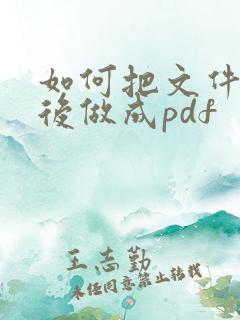 如何把文件
後做成pdf
王志勤
未经同意禁止转载